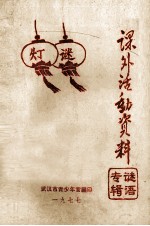 课外活动资料
谜语
专辑
灯谜
武汉市青少年宫编印
一九七七